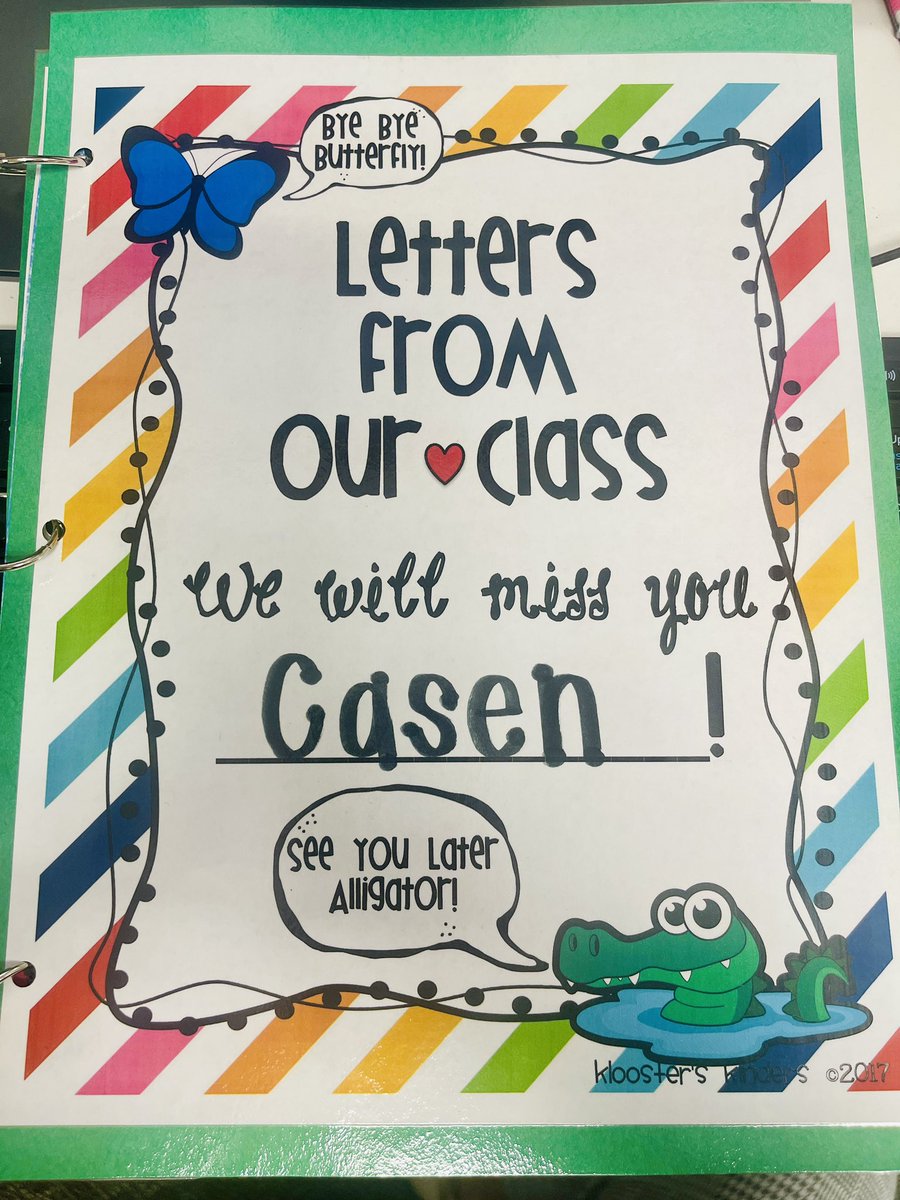 Bye Bye
Butterfly!
Letters
from
our class
We will miss you
Casen !
See you later
Alligator!
Klooster's Kinders ©2017